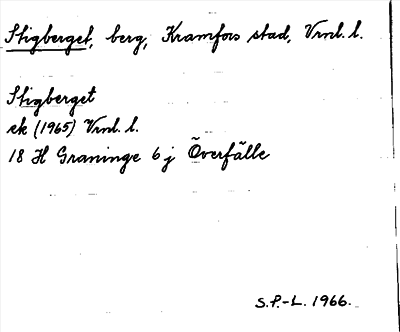 Stigberget, berg, Kramfors stad, Vrnl. l.
Stigberget
ek (1965) Vrnl. l.
18 H Graninge 6 j Överfälle
S.P.-L. 1966.